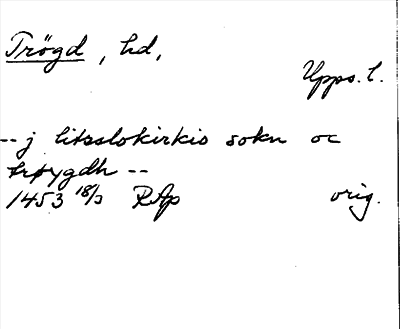 Trögd, hd,
Upps. l.
-- j litsslokirkio sokn oc
trøygdh --
1453 18/3 RAp orig.